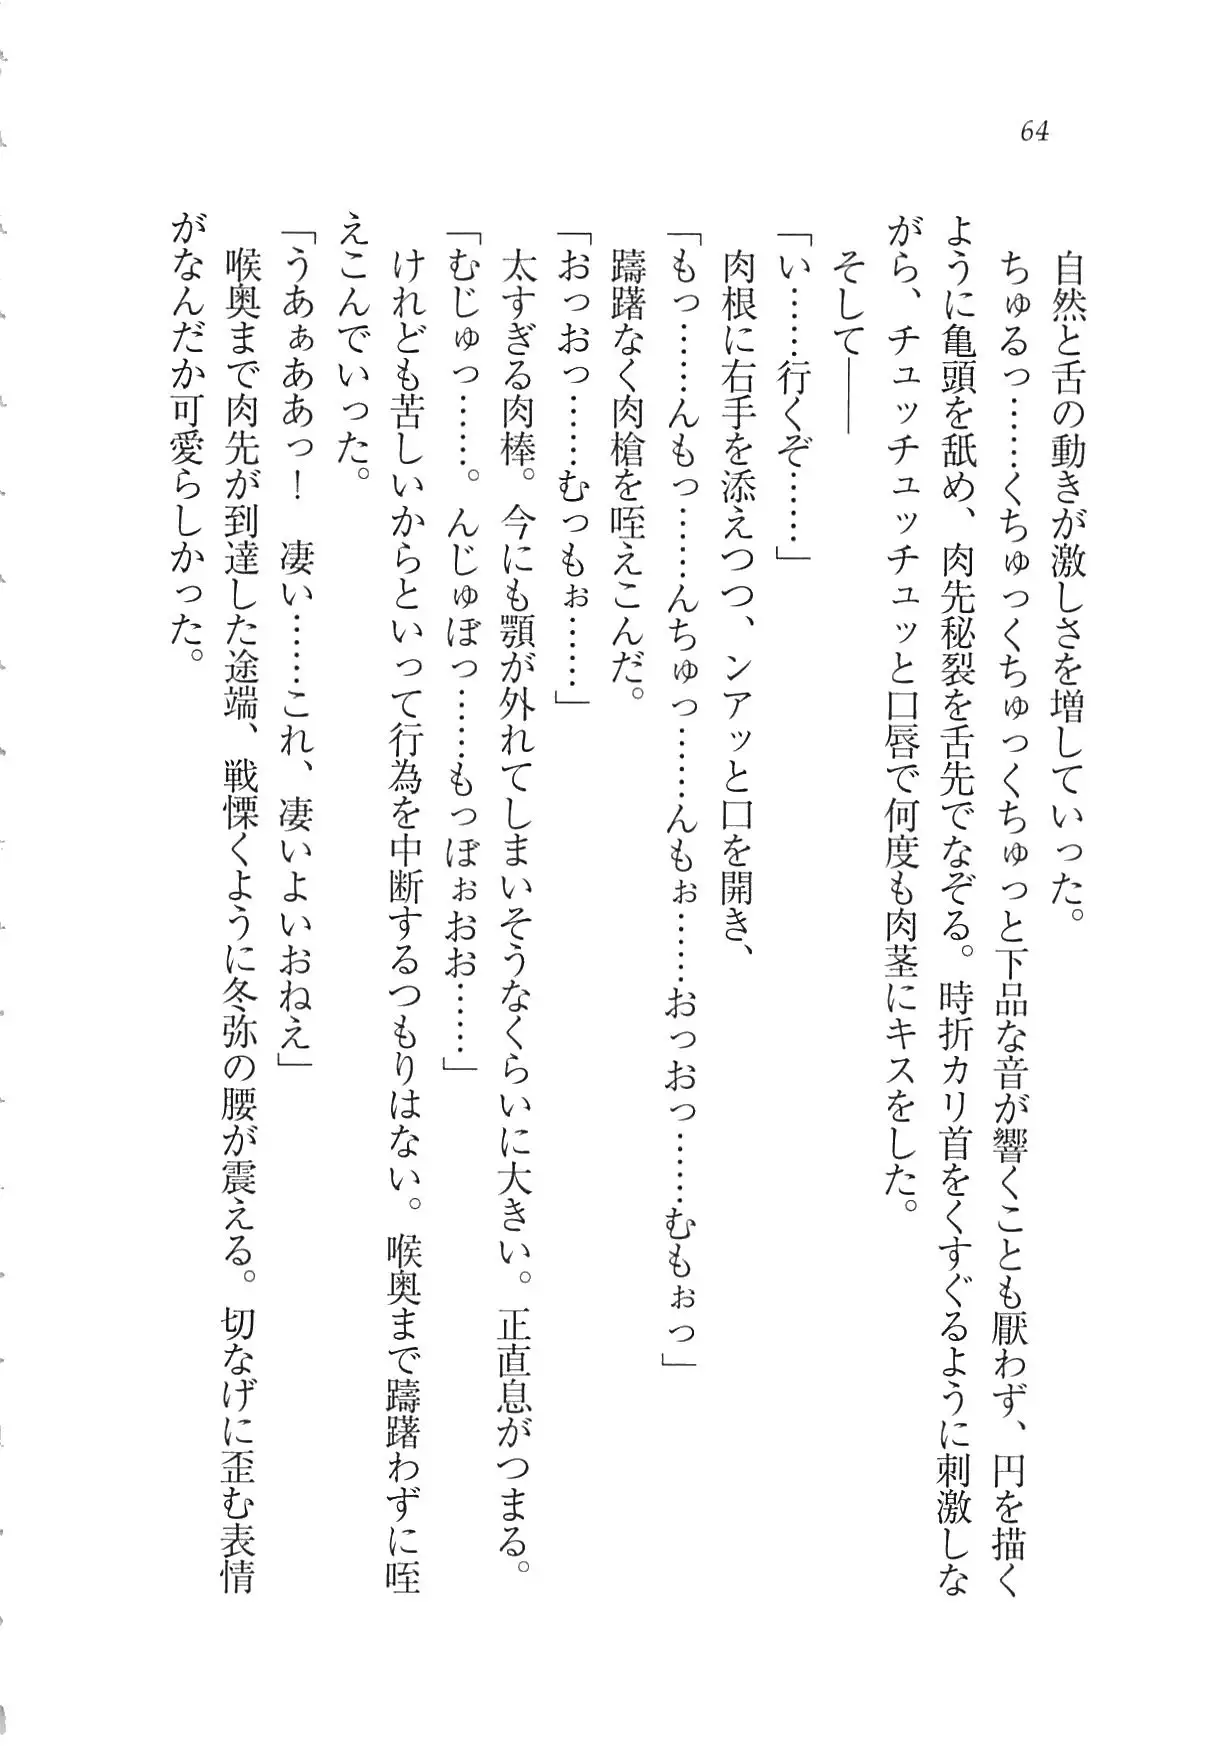 64
自然と舌の動きが激しさを増していった。
ちゅるっ……くちゅっくちゅっくちゅっと下品な音が響くことも厭わず、円を描く
ように亀頭を舐め、肉先秘裂を舌先でなぞる。時折カリ首をくすぐるように刺激しな
がら、チュッチュッチュッと口唇で何度も肉茎にキスをした。
そして――
「い……行くぞ……」
肉根に右手を添えつつ、ンアッと口を開き、
「もっ……んもっ……んちゅっ……んもぉ……おっおっ……むもぉっ」
躊躇なく肉槍を咥えこんだ。
「おっおっ……むっもぉ……」
太すぎる肉棒。今にも顎が外れてしまいそうなくらいに大きい。正直息がつまる。
「むじゅっ……。んじゅぼっ……もっぼぉおお……」
けれども苦しいからといって行為を中断するつもりはない。喉奥まで躊躇わずに咥
えこんでいった。
「うあぁああっ！　凄い……これ、凄いよいおねえ」
喉奥まで肉先が到達した途端、戦慄くように冬弥の腰が震える。切なげに歪む表情
がなんだか可愛らしかった。